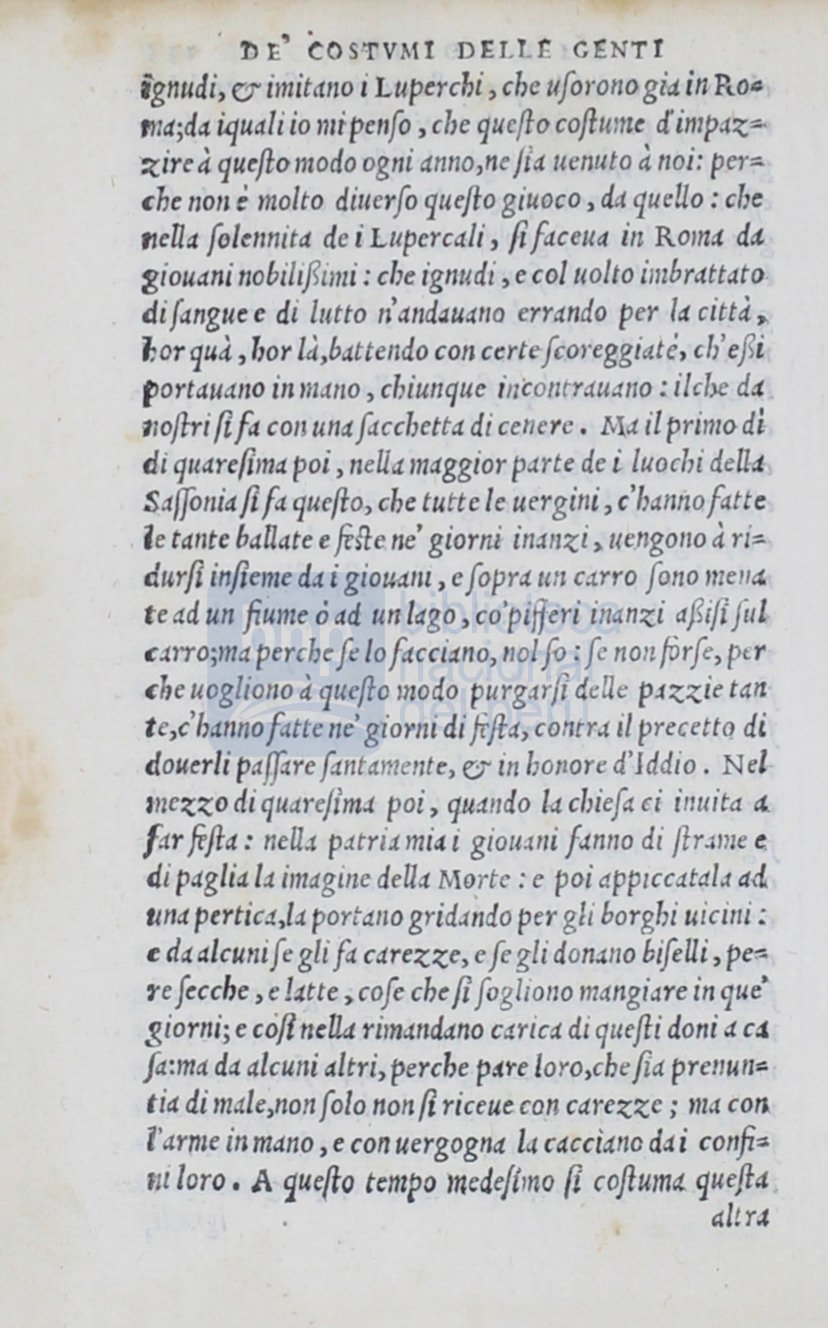 DE' COSTVMI DELLE GENTI
ignudi, & imitano i Luperchi, che uſorono gia in Ro=
ma; da iquali io mi penſo, che queſto coſtume d'impaz=
zire à queſto modo ogni anno, ne ſia uenuto à noi: per=
che non è molto diuerſo queſto giuoco, da quello: che
nella ſolennita de i Lupercali, ſi faceua in Roma da
giouani nobilißimi: che ignudi, e col uolto imbrattato
di ſangue e di lutto n'andauano errando per la città,
hor quà, hor là, battendo con certe ſcoreggiate, ch'eßi
portauano in mano, chiunque incontrauano: ilche da
noſtri ſi fa con una ſacchetta di cenere. Ma il primo dì
di quareſima poi, nella maggior parte de i luochi della
Saſſonia ſi fa queſto, che tutte le uergini, c'hanno fatte
le tante ballate e feſte ne' giorni inanzi, uengono à ri=
durſi inſieme da i giouani, e ſopra un carro ſono mena
te ad un fiume ò ad un lago, co'pifferi inanzi aßiſi ſul
carro; ma perche ſe lo facciano, nol ſo: ſe non forſe, per
che uogliono à queſto modo purgarſi delle pazzie tan
te, c'hanno fatte ne' giorni di feſta, contra il precetto di
douerli paſſare ſantamente, & in honore d'Iddio. Nel
mezzo di quareſima poi, quando la chieſa ci inuita a
far feſta: nella patria mia i giouani fanno di ſtrame e
di paglia la imagine della Morte: e poi appiccatala ad
una pertica, la portano gridando per gli borghi uicini:
e da alcuni ſe gli fa carezze, e ſe gli donano biſelli, pe=
re ſecche, e latte, coſe che ſi ſogliono mangiare in que'
giorni; e coſi nella rimandano carica di queſti doni a ca
ſa: ma da alcuni altri, perche pare loro, che ſia prenun=
tia di male, non ſolo non ſi riceue con carezze; ma con
l'arme in mano, e con uergogna la cacciano da i confi=
ni loro. A queſto tempo medeſimo ſi coſtuma queſta
altra
biblioteca
nacional
del perú